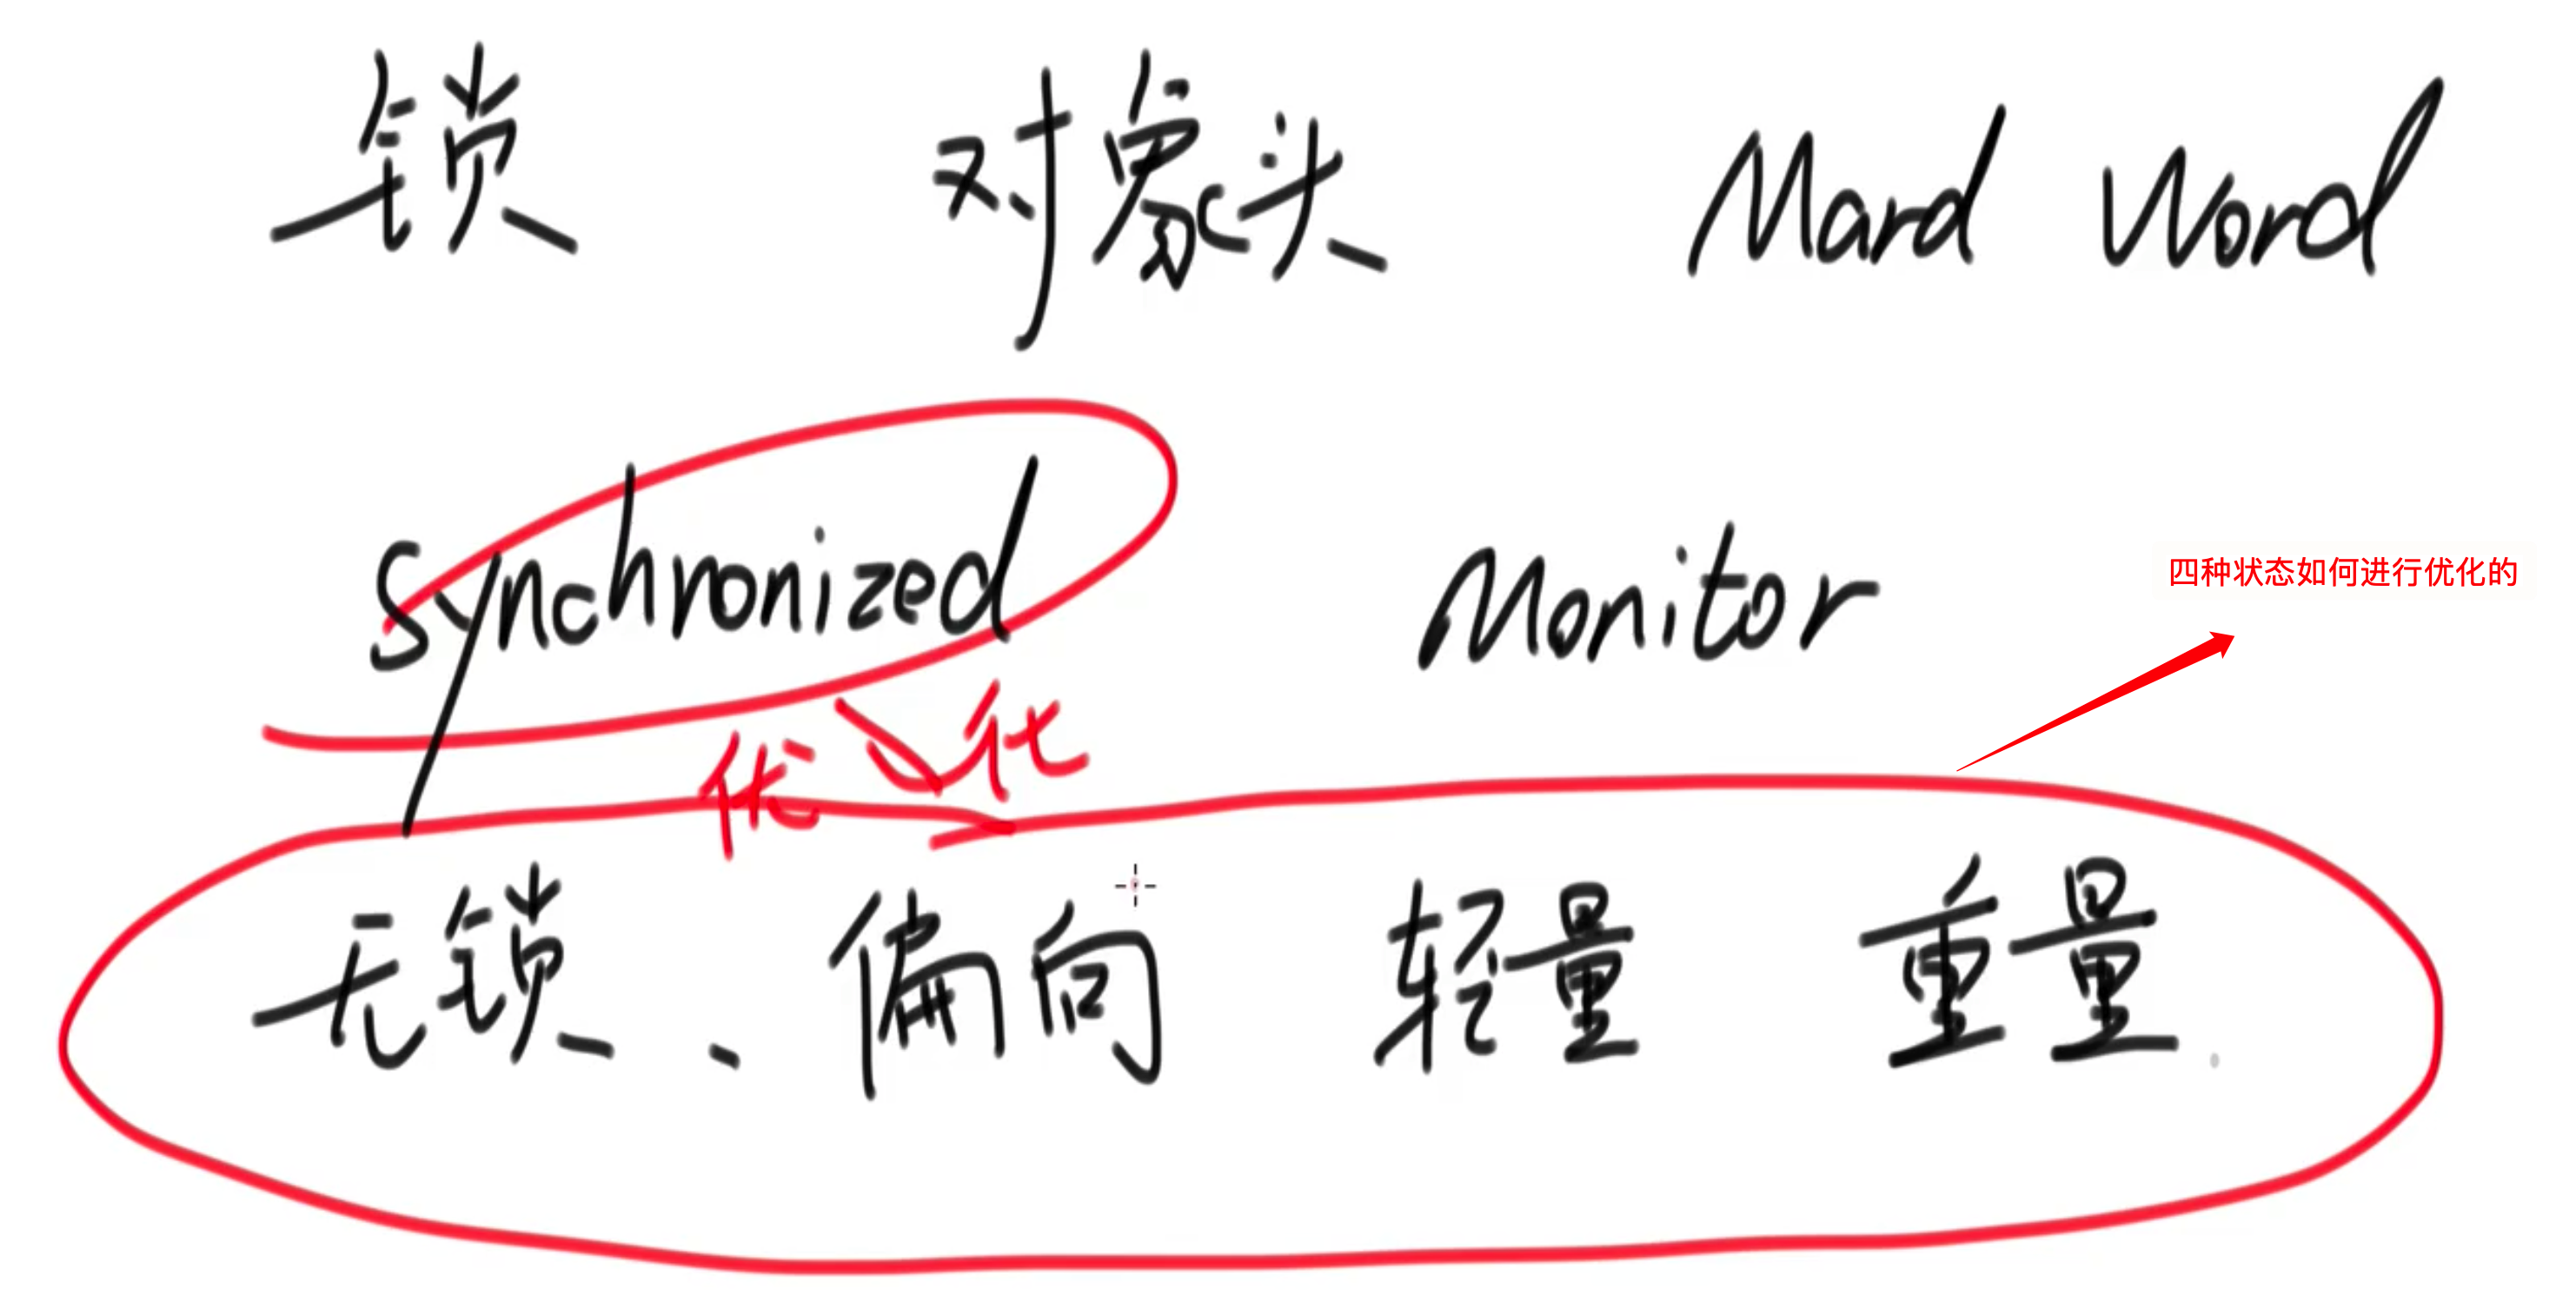 锁 对象头 Mard Word
synchronized Monitor
四种状态如何进行优化的
优化
无锁、偏向 轻量 重量